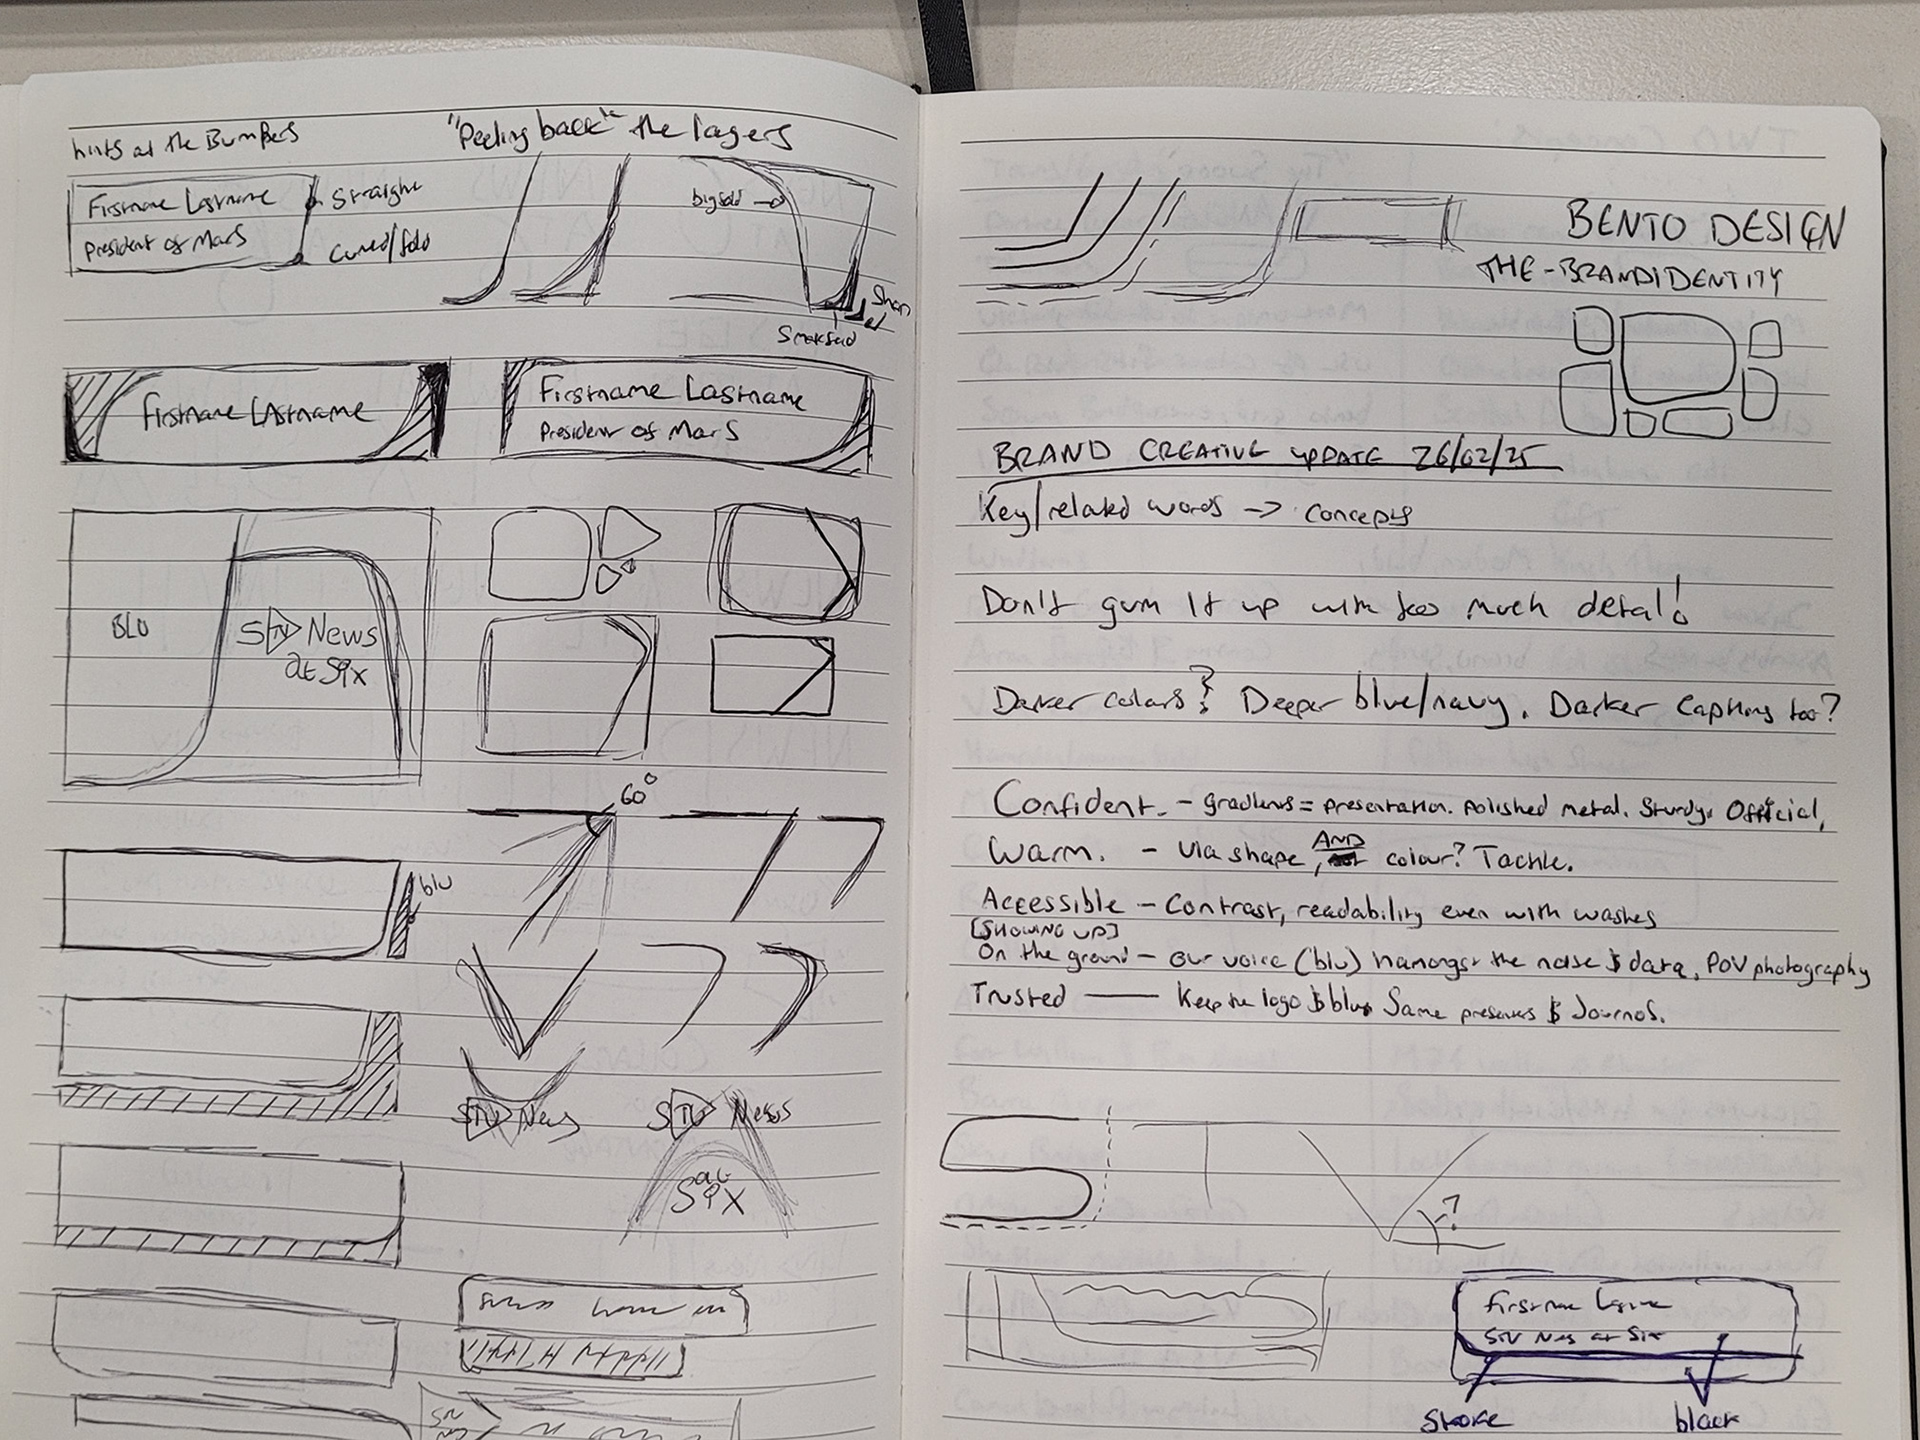 hints at the Bumpers
"Peeling back" the layers
Firstname Lastname
President of Mars
Straight
Curved/fold
big fold
Small fold
Firstname Lastname
Firstname Lastname
President of Mars
BLU
STV News
at Six
60°
blu
STV News
STV News
at
Six
BENTO DESIGN
THE-BRANDIDENTITY
BRAND CREATIVE UPDATE 26/02/25
Key/related words -> concepts
Don't gum it up with too much detail!
Darker colours? Deeper blue/navy. Darker Captions too?
Confident. - gradients = presentation. polished metal. Sturdy. Official,
Warm. - via shape, AND colour? Tackle.
Accessible - Contrast, readability even with washes
[SHOWING UP]
On the ground - our voice (blu) the noise & data, POV photography
Trusted — Keep the logo & blu. Same presenters & Journos.
S T V
?
Firstname Lastname
STV News at Six
Stroke
black